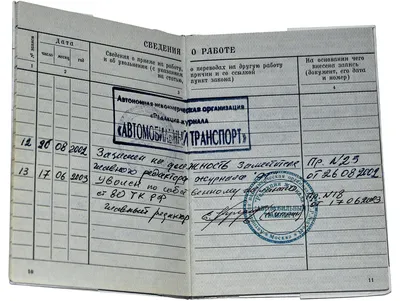 СВЕДЕНИЯ О РАБОТЕ
№ записи
Дата
число месяц год
Сведения о приеме на работу,
и об увольнении (с указанием
о переводах на другую работу
причин и со ссылкой
пункт закона)
На основании чего
внесена запись
(документ, его дата
и номер)
1 2 3 4
Автономная некоммерческая организация
«Редакция журнала
«АВТОМОБИЛЬНЫЙ ТРАНСПОРТ»
12 20 08 2002 на должность заместителя Пр. N25
главного редактора журнала от 26.08.2002
13 17 06 2003 Уволен по собственному Пр. N18
ТК РФ от 17.06.2003
главный редактор
10
11